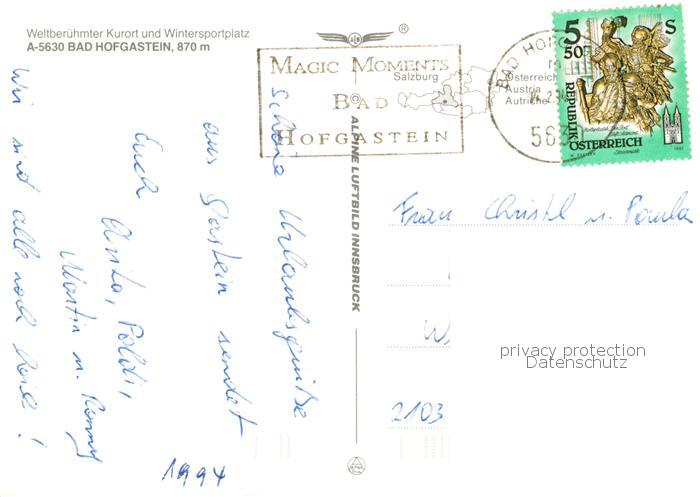 Weltberühmter Kurort und Wintersportplatz
A-5630 BAD HOFGASTEIN, 870 m
®
MAGIC MOMENTS
BAD
HOFGASTEIN
Salzburg
Österreich
Austria
Autriche
BAD HO
563
5 S
50
REPUBLIK
ÖSTERREICH
© ALPINE LUFTBILD INNSBRUCK
Schöne Urlaubsgrüße
aus Gastein sendet
Euch
Anita, Poldi,
Martin u. Ronny
Wir sind alle noch heil!
1994
Frau Christl u. Paula
W
2103
privacy protection
Datenschutz